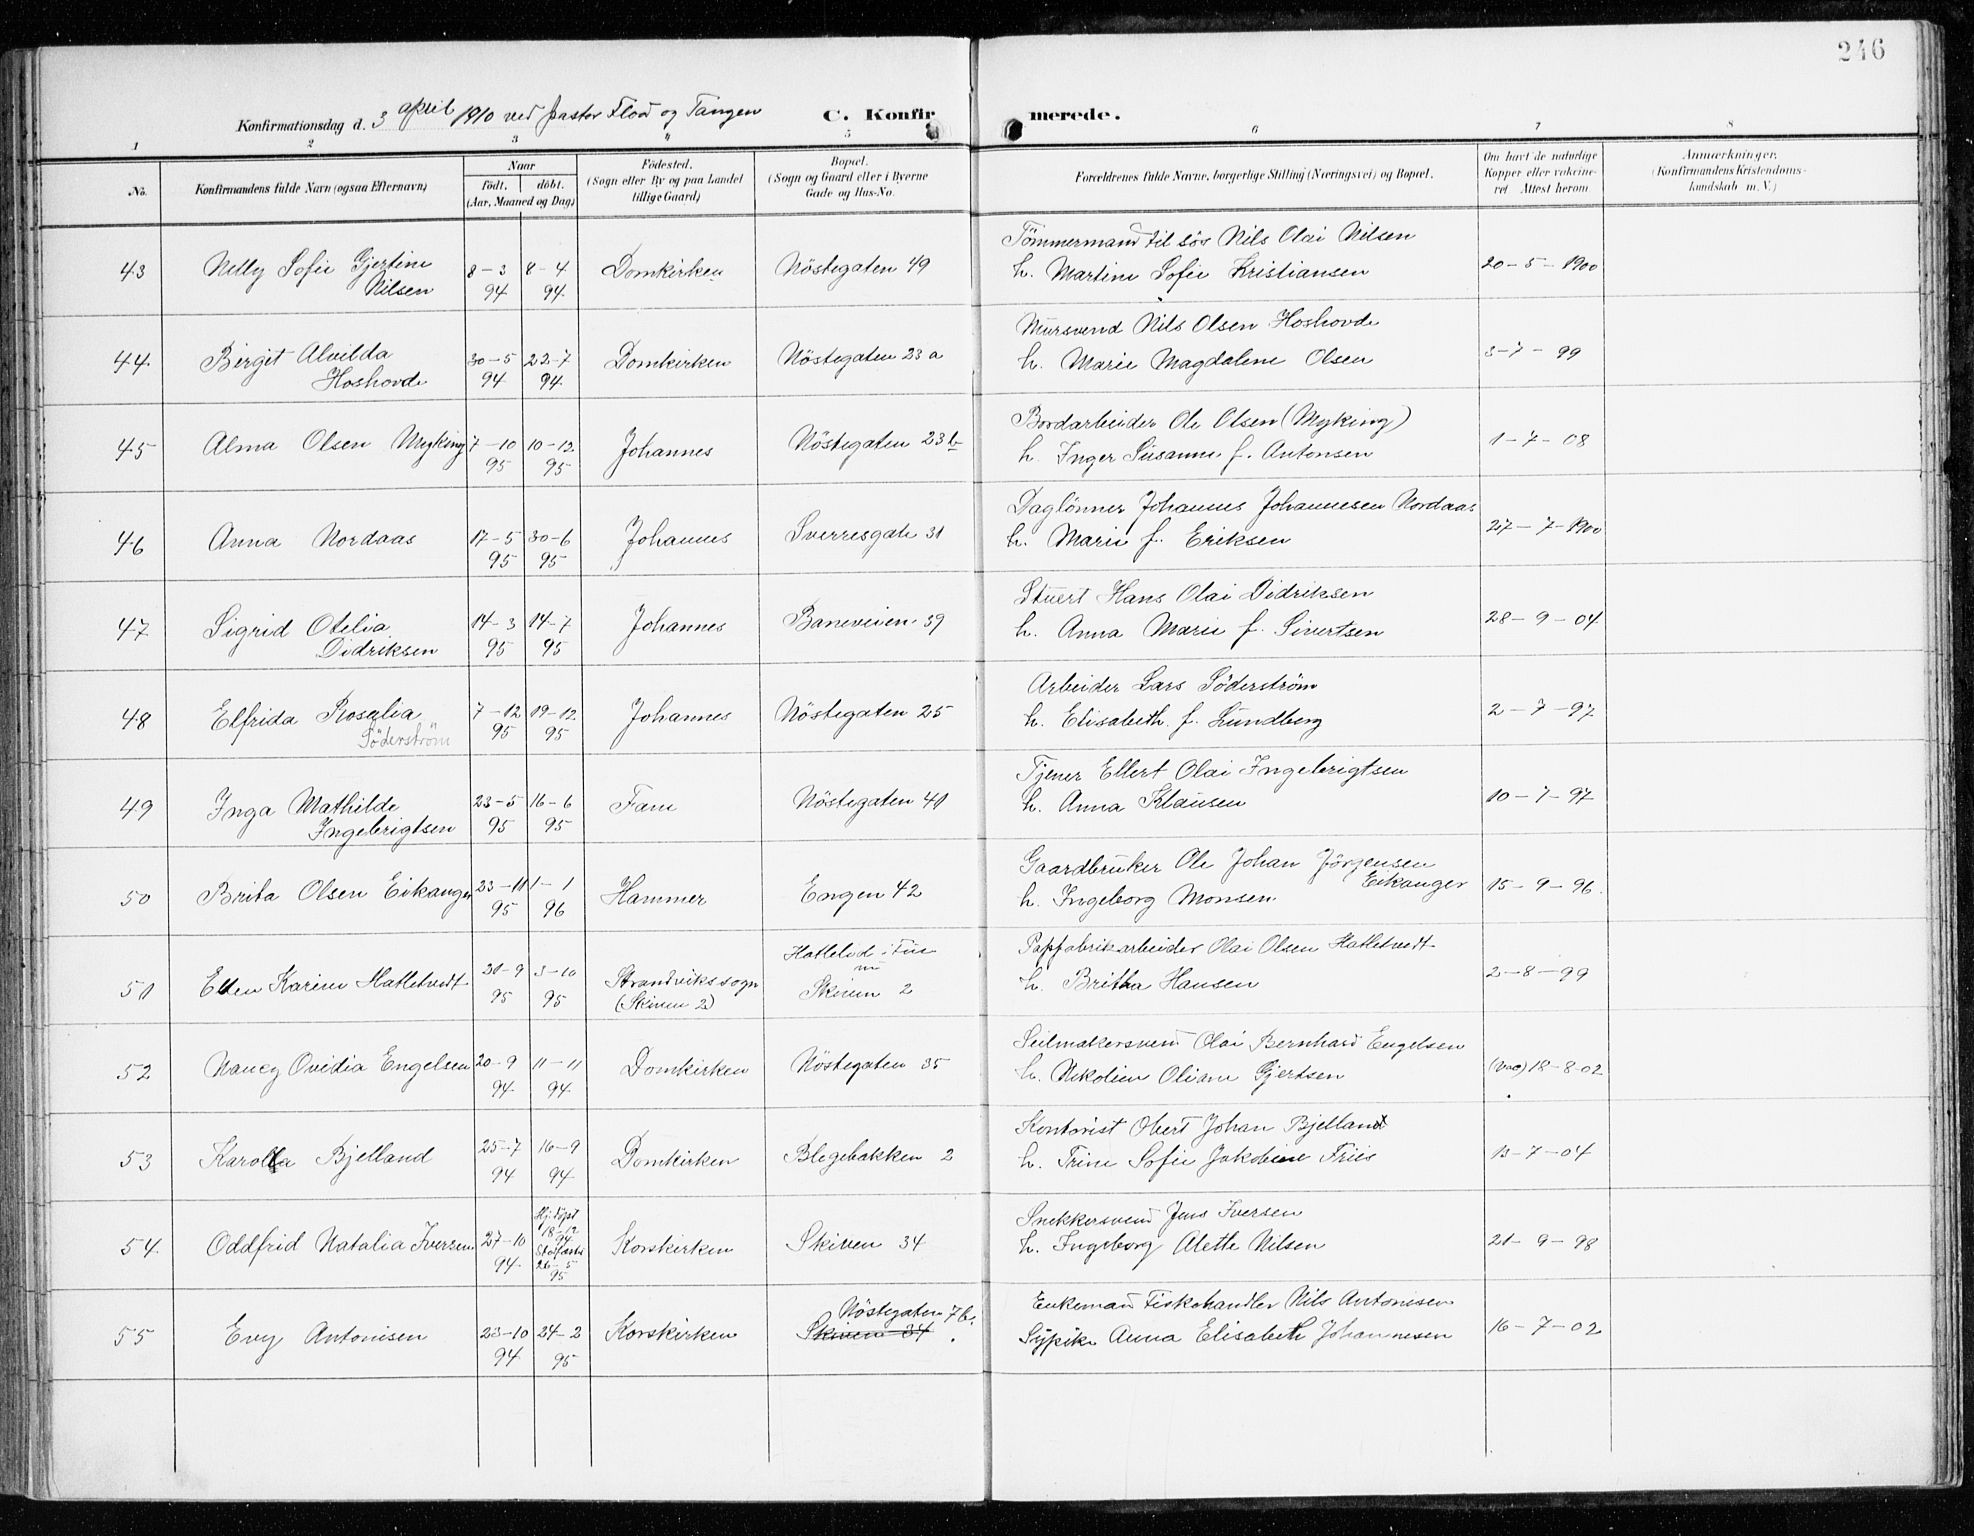 246
Konfirmationsdag d. 3 april 1910 ved pastor Flood og Tangen C. Konfir merede.
1 2 3 4 5 6 7 8
No. Konfirmandens fulde Navn (ogsaa Efternavn) Naar födt, döbt. (Aar, Maaned og Dag) Födested. (Sogn eller By og paa Landet tillige Gaard) Bopæl. (Sogn og Gaard eller i Byerne Gade og Hus-No. Forældrenes fulde Navne, borgerlige Stilling (Næringsvei) og Bopæl. Om havt de naturlige Kopper eller vakcineret Attest herom Anmærkninger. (Konfirmandens Kristendomskundskab m. V.)
Tömmermand til sös Nils Olai Nilsen
43 Nelly Sofie Gjertine 8-3 8-4 Domkirken Nöstegaten 49 h. Martine Sofie Kristiansen 20-5-1900
Nilsen 94 94
Mursvend Nils Olsen Hoshovde
44 Birgit Alvilda 30-5 22-7 Domkirken Nöstegaten 23 a h. Marie Magdalene Olsen 3-7-99
Hoshovde 94 94
Bordarbeider Ole Olsen (Myking)
45 Alma Olsen Myking 7-10 10-12 Johannes Nöstegaten 23 b h. Inger Susanne f. Antonsen 1-7-08
95 95
Daglönner Johannes Johannesen Nordaas
46 Anna Nordaas 17-5 30-6 Johannes Sverresgate 31 h. Marie f. Eriksen 27-7-1900
95 95
Stuert Hans Olai Didriksen
47 Sigrid Otelia 14-3 14-7 Johannes Baneveien 59 h. Anna Marie f. Sivertsen 28-9-04
Didriksen 95 95
Arbeider Lars Söderström
48 Elfrida Rosalia 7-12 19-12 Johannes Nöstegaten 25 h. Elisabeth f. Lundberg 2-7-97
Söderström 95 95
Tjener Ellert Olai Ingebrigtsen
49 Inga Mathilde 23-5 16-6 Fane Nöstegaten 41 h. Anna Klausen 10-7-97
Ingebrigtsen 95 95
Gaardbruker Ole Johan Jörgensen
Eikanger
50 Brita Olsen Eikanger 23-11 1-1 Hammer Engen 42 h. Ingeborg Monsen 15-9-96
95 96
Papfabrikarbeider Olai Olsen Hatletvedt
51 Ellen Karine Hatletvedt 21-9 3-10 Strandviks sogn Skiven 2 h. Britha Hansen 2-8-99
95 95 (Skiven 2)
Seilmakersvend Olai Bernhard Engelsen
52 Nancy Ovidia Engelsen 20-9 11-11 Domkirken Nöstegaten 35 h. Nikoline Oliane Gjertsen (vac) 18-8-02
94 94
Kontorist Obert Johan Bjelland
53 Karolla Bjelland 25-7 16-9 Domkirken Blegebakken 2 h. Trine Sofie Jakobine Friis 13-7-04
94 94
Hj. döpt Snekkersvend Jens Iversen
18-12
94
54 Oddfrid Natalia Iversen 27-10 Korskirken Skiven 34 h. Ingeborg Alette Nilsen 21-9-98
94 26-5
95
Nöstegaten 7 b. Enkemand Fiskehandler Nils Antonisen
55 Evy Antonisen 23-10 24-2 Korskirken Skiven 34 Sypike Anna Elisabeth Johannesen 16-7-02
94 95